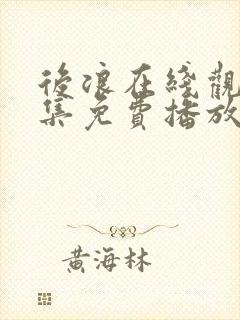 後浪在綫觀
集免費播放
黃海林